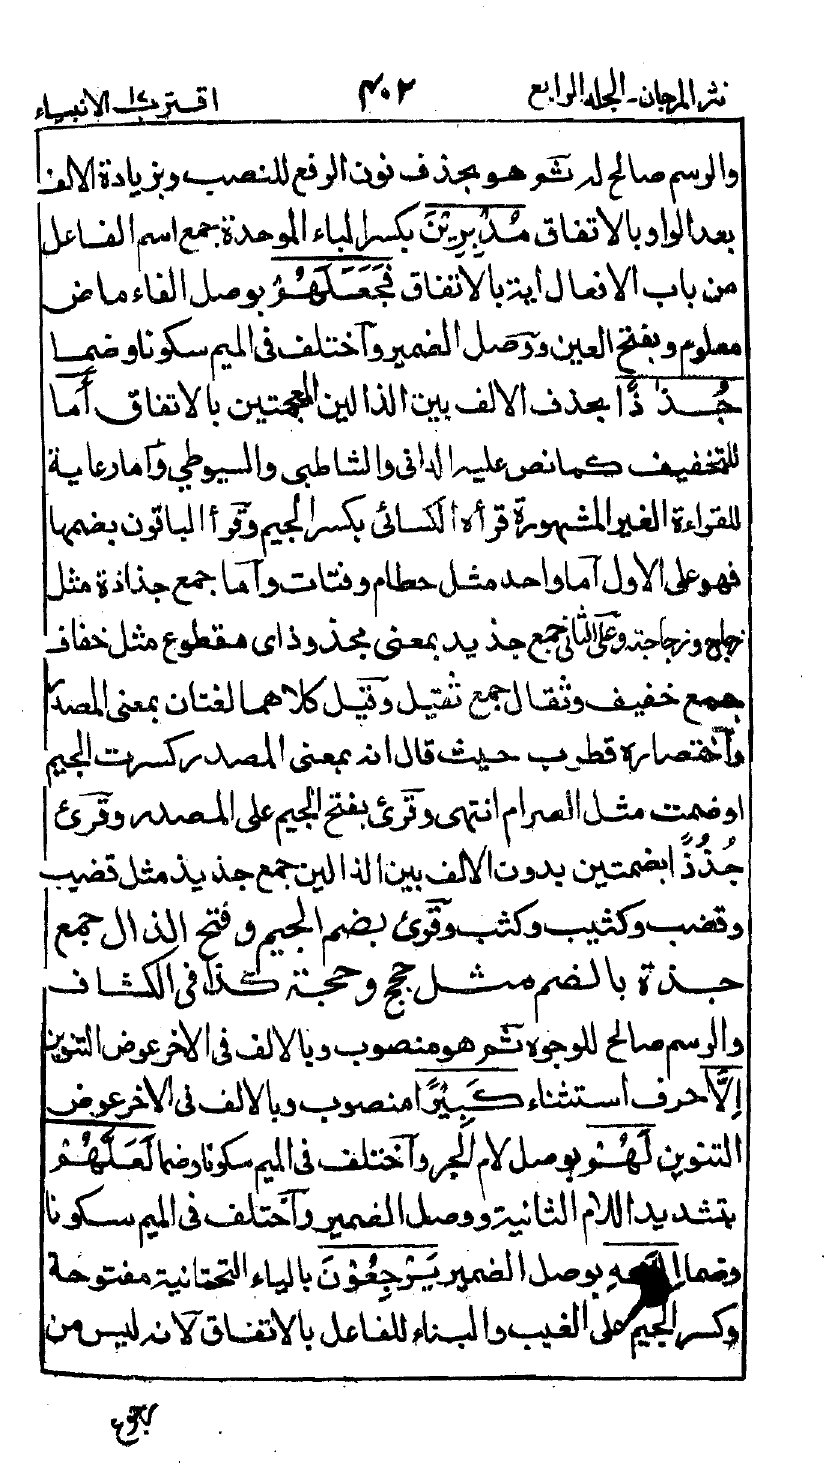 نثر المرجان - الجلد الرابع ۴۰۲ اقترب الانبياء
والرسم صالح له ثم هو بحذف نون الرفع للنصب وبزيادة الالف
بعد الواو بالاتفاق مُدْبِرِيْنَ بكسر الباء الموحدة جمع اسم الفاعل
من باب الافعال اية بالاتفاق فَجَعَلَهُمْ بوصل الفاء ماض
معلوم وبفتح العين ووصل الضمير وآختلف فى الميم سكونا وضما
جُذٰذًا بحذف الالف بين الذالين المعجمتين بالاتفاق أما
للتخفيف كما نص عليه الدانى والشاطبى والسيوطي وأما رعاية
للقراءة الغير المشهورة قرأه الكسائى بكسر الجيم وقرأ الباقون بضمها
فهو على الاول آما واحد مثل حطام وفتات وآما جمع جذاذة مثل
زجاج وزجاجة وعلى الثانى جمع جذيذ بمعنى مجذوذ اى مقطوع مثل خفاف
جمع خفيف وثقال جمع ثقيل وقيل كلاهما لغتان بمعنى المصدر
وآختصاره قطرب حيث قال انه بمعنى المصدر كسرت الجيم
اوضمت مثل الصرام انتهى وقرئ بفتح الجيم على المصدر وقرئ
جُذُذًا بضمتين بدون الالف بين الذالين جمع جذيذ مثل قضيب
وقضب وكثيب وكثب وقرئ بضم الجيم وفتح الذال جمع
جذة بالضم مثل حجج وحجة كذا فى الكشاف
والرسم صالح للوجوه ثم هو منصوب وبالالف فى الاخر عوض التنوين
اِلَّا حرف استثناء كَبِيْرًا منصوب وبالالف فى الاخر عوض
التنوين لَهُمْ بوصل لام الجر وآختلف فى الميم سكونا وضما لَعَلَّهُمْ
بتشديد اللام الثانية ووصل الضمير وآختلف فى الميم سكونا
وضما بوصل الضمير يَرْجِعُوْنَ بالياء التحتانية مفتوحة
وكسر الجيم على الغيب والبناء للفاعل بالاتفاق لانه ليس من